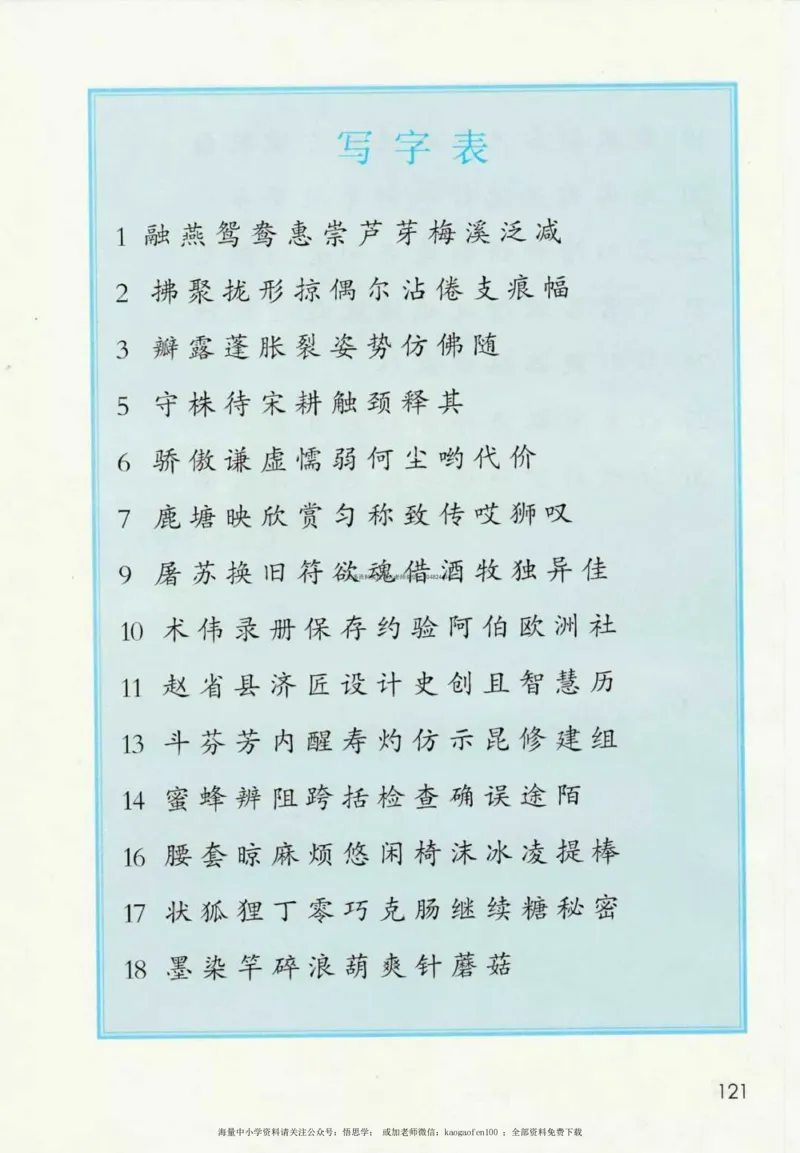 写字表
1 融燕鸳鸯惠崇芦芽梅溪泛减
2 拂聚拢形掠偶尔沾倦支痕幅
3 瓣露蓬胀裂姿势仿佛随
5 守株待宋耕触颈释其
6 骄傲谦虚懦弱何尘哟代价
7 鹿塘映欣赏匀称致传哎狮叹
9 屠苏换旧符欲魂借酒牧独异佳
10 术伟录册保存约验阿伯欧洲社
11 赵省县济匠设计史创且智慧历
13 斗芬芳内醒寿灼仿示昆修建组
14 蜜蜂辨阻跨括检查确误途陌
16 腰套晾麻烦悠闲椅沫冰凌提棒
17 状狐狸丁零巧克肠继续糖秘密
18 墨染竿碎浪葫爽针蘑菇
121
海量中小学资料请关注公众号：悟思学； 或加老师微信：kaogaofen100 ；全部资料免费下载